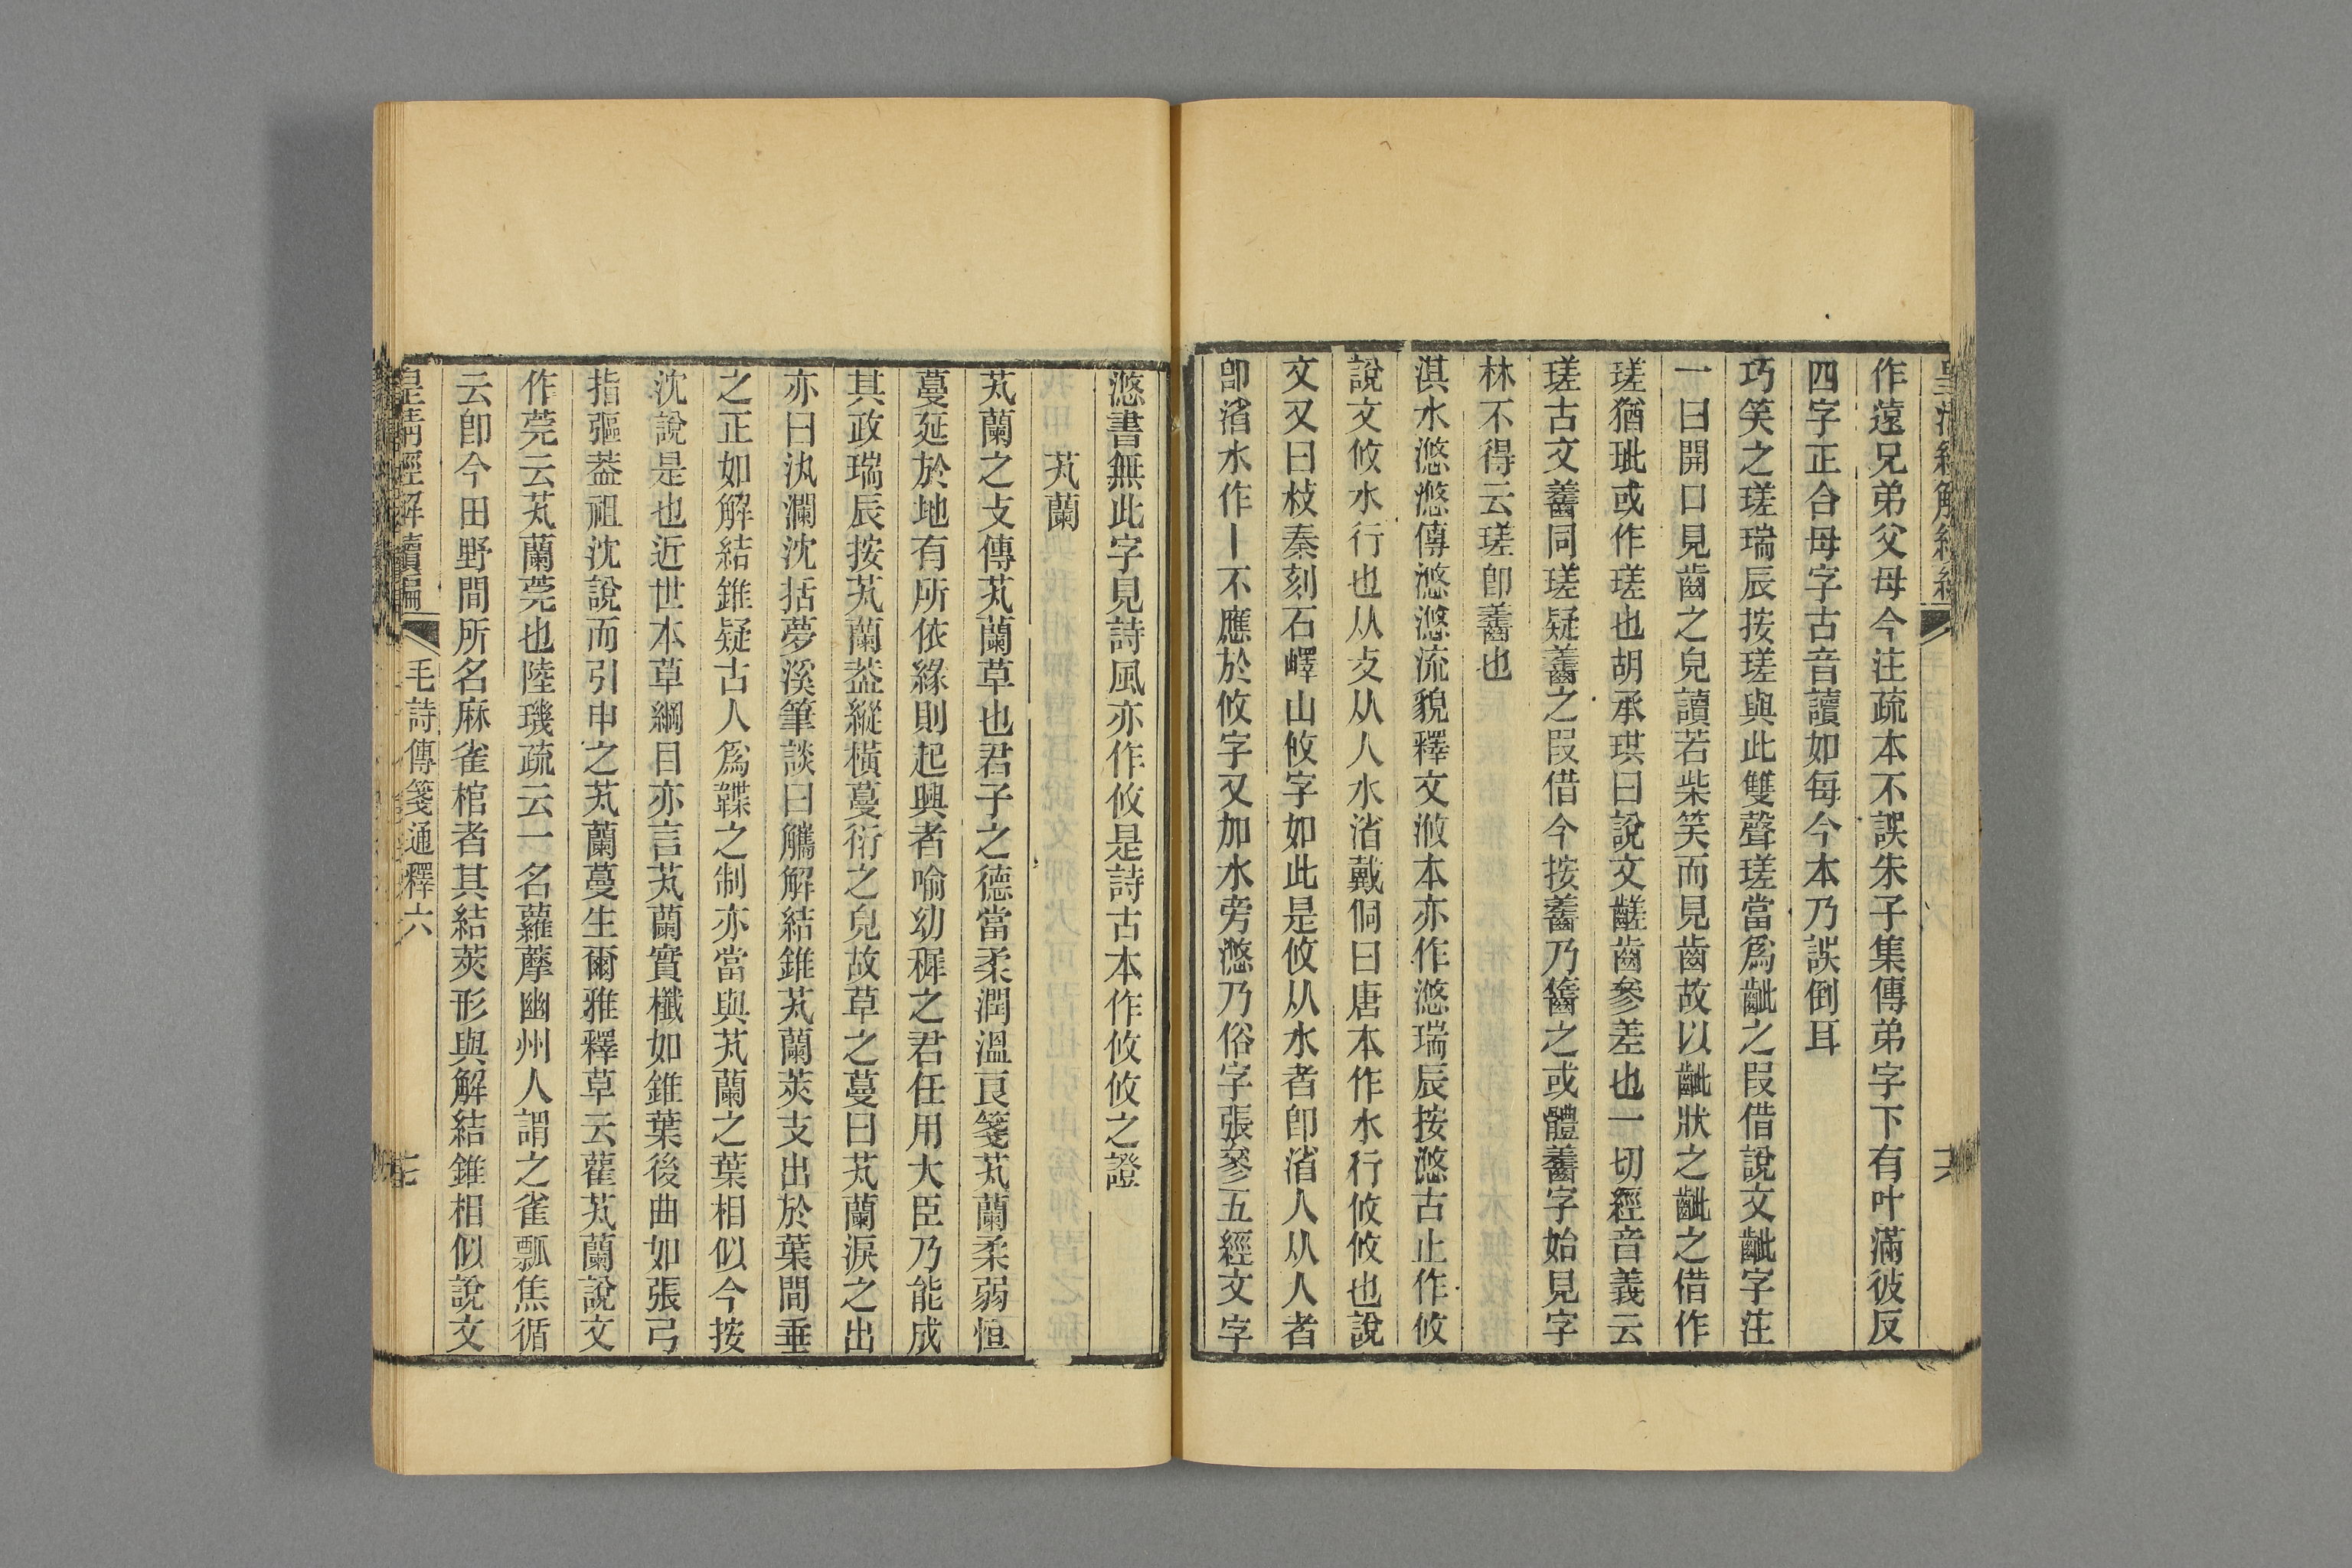 作遠兄弟父母今注疏本不誤朱子集傳弟字下有叶滿彼反
四字正合母字古音讀如每今本乃誤倒耳
巧笑之瑳瑞辰按瑳與此雙聲瑳當爲齜之叚借說文齜字注
一曰開口見齒之皃讀若柴笑而見齒故以齜狀之齜之借作
瑳猶玼或作瑳也胡承珙曰說文齹齒參差也一切經音義云
瑳古文䶴同瑳疑䶴之叚借今按䶴乃齹之或體䶴字始見字
林不得云瑳卽䶴也
淇水滺滺傳滺滺流貌釋文浟本亦作滺瑞辰按滺古止作攸
說文攸水行也从攴从人水渻戴侗曰唐本作水行攸攸也說
文又曰㭊秦刻石嶧山攸字如此是攸从水者卽渻人从人者
卽渻水作丨不應於攸字又加水旁滺乃俗字張參五經文字
滺書無此字見詩風亦作攸是詩古本作攸攸之證
芄蘭
芄蘭之支傳芄蘭草也君子之德當柔潤溫良箋芄蘭柔弱恒
蔓延於地有所依緣則起興者喻幼穉之君任用大臣乃能成
其政瑞辰按芄蘭葢縱橫蔓衍之皃故草之蔓曰芄蘭淚之出
亦曰汍瀾沈括夢溪筆談曰觿解結錐芄蘭莢支出於葉間垂
之正如解結錐疑古人爲韘之制亦當與芄蘭之葉相似今按
沈說是也近世本草綱目亦言芄蘭實櫼如錐葉後曲如張弓
指彄葢祖沈說而引申之芄蘭蔓生爾雅釋草云雚芄蘭說文
作莞云芄蘭莞也陸璣疏云一名蘿藦幽州人謂之雀瓢焦循
云卽今田野間所名麻雀棺者其結莢形與解結錐相似說文
皇清經解續編 毛詩傳箋通釋六